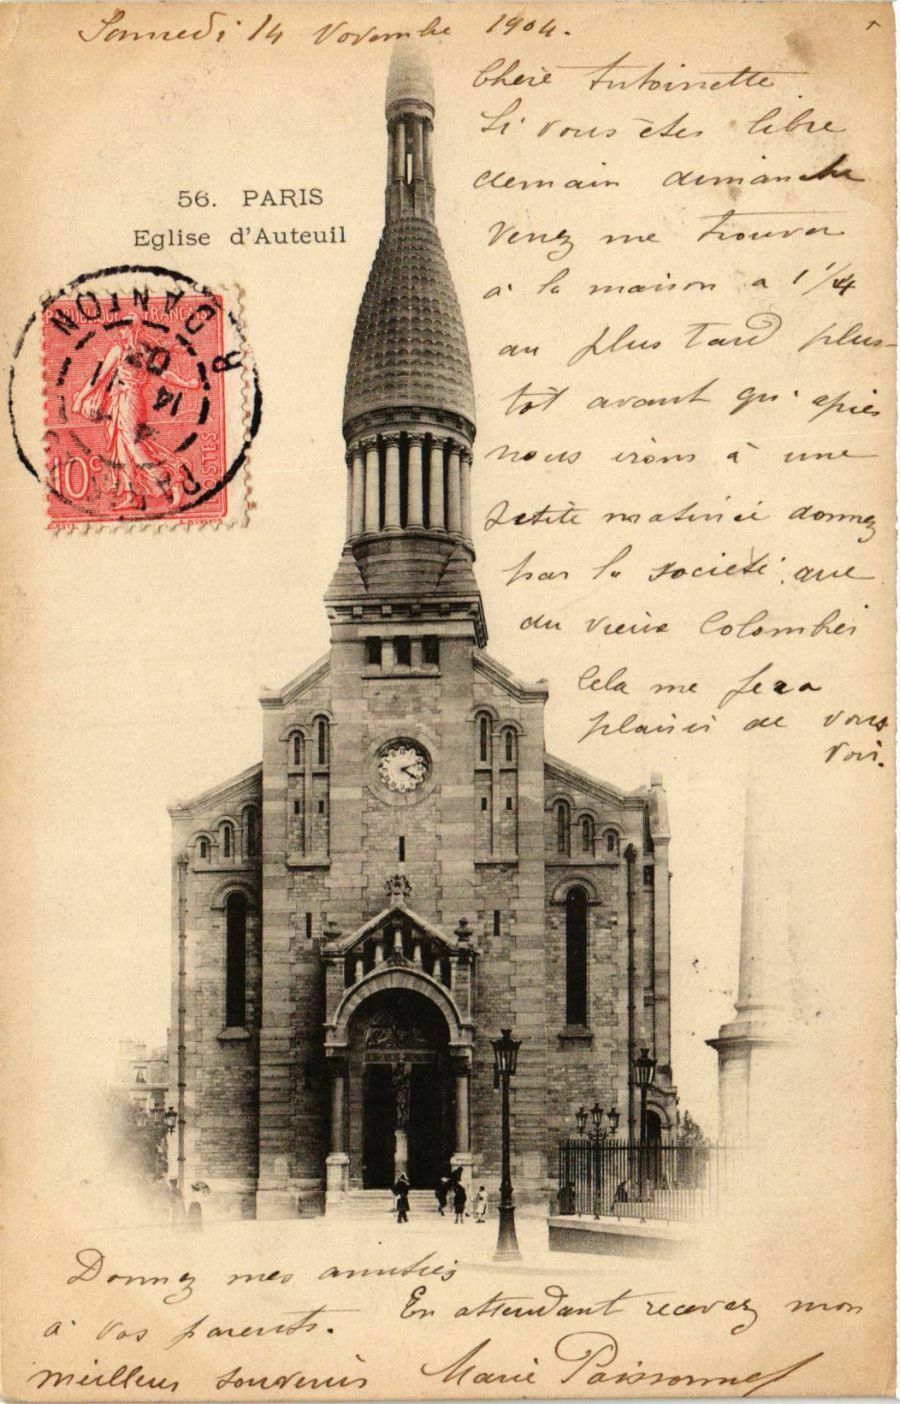 Samedi 14 Novembre 1904.
Chère Antoinette
Si vous êtes libre
demain dimanche
venez me trouver
à la maison a 1 1/4
au plus tard plus-
tôt avant qu'après
nous irons à une
petite matinée donnez
par la société
du vieux Colombier
Cela me fera
plaisir de vous
voir.
56. PARIS
Eglise d'Auteuil
REPUBLIQUE FRANÇAISE
POSTES
10c
R. DANTON
14
PARIS
Donnez mes amitiés
à vos parents. En attendant recevez mon
meilleur souvenir Marie Poissonnet